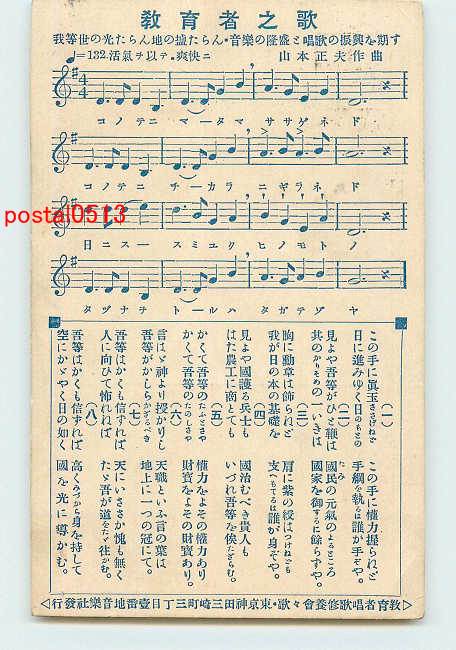 教育者之歌
我等世の光たらん地の塩たらん・音樂の隆盛と唱歌の振興を期す
♩=132.活氣ヲ以テ.爽快ニ 山本正夫作曲
コノテニ マータマ ササゲネ ド
コノテニ チーカラ ニギラネ ド
日ニスースミユク ヒノモトノ
タヅナヲ トール ハタガテゾ ヤ
postal0513
(一)
この手に眞玉ささげねど この手に權力握られど
日に進みゆく日のもとの 手綱を執るは誰が手ぞや。
(二)
見よや吾等がひと鞭は 國民の元氣のよるところ
其のかりそめの一いきは 國家を御するに餘らずや。
(三)
胸に勳章は飾られど 肩に紫の綬はつけねども
我が日の本の基礎を 支へもてるは誰が身ぞや。
(四)
見よや國護る兵士も 國治むべき貴人も
はた農工に商とても いづれ吾等を俟たざらむ。
(五)
かくて吾等のたふとさや 權力をよその權力あり
かくて吾等のたのしさや 財寳をよその財寳あり。
(六)
言はゞ神より授かりし 天職といふ言の葉は
吾等がかしらかざるべき 地上に一つの冠にて。
(七)
吾等はかくも信ずれば 天にいささか愧も無く
人に向ひて怖れれば たゞ吾が道をたゞ往かむ。
(八)
吾等はかくも信ずれば 高くみづから身を持して
空にかゞやく日の如く 國を光に導かむ。
教育者唱歌修養會々歌・東京神田三崎町三丁目壹番地音樂社發行